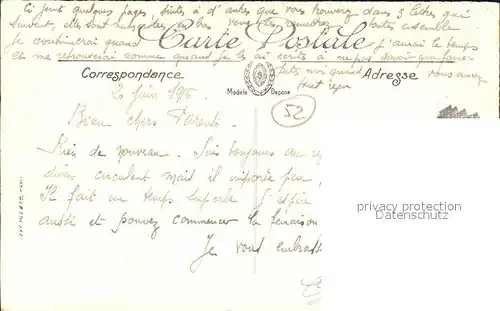 Ci joint quelques pages, suites à d'autres que vous trouverez dans 3 lettres qui
suivent, elles sont numérotées en bas vous les remettrez toutes ensemble
Je continuerai quand j'aurai le temps
Carte Postale
Et me retrouverai comme quand je les ai écrits à ne pas savoir que faire
Dites moi quand vous aurez
tout reçu
Correspondance
Adresse
Modèle Déposé
52
2 Juin 1915
Bien chers Parents
Rien de nouveau. Suis toujours au
divers circulent mais il importe peu,
Il fait un temps superbe. J'espère
aussi et pouvez commencer la fenaison
Je vous embrasse
privacy protection
Datenschutz